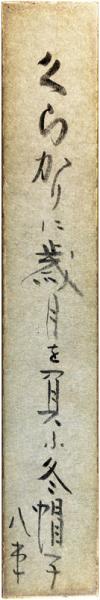 くらかりに歳月を負ふ冬帽子
八束